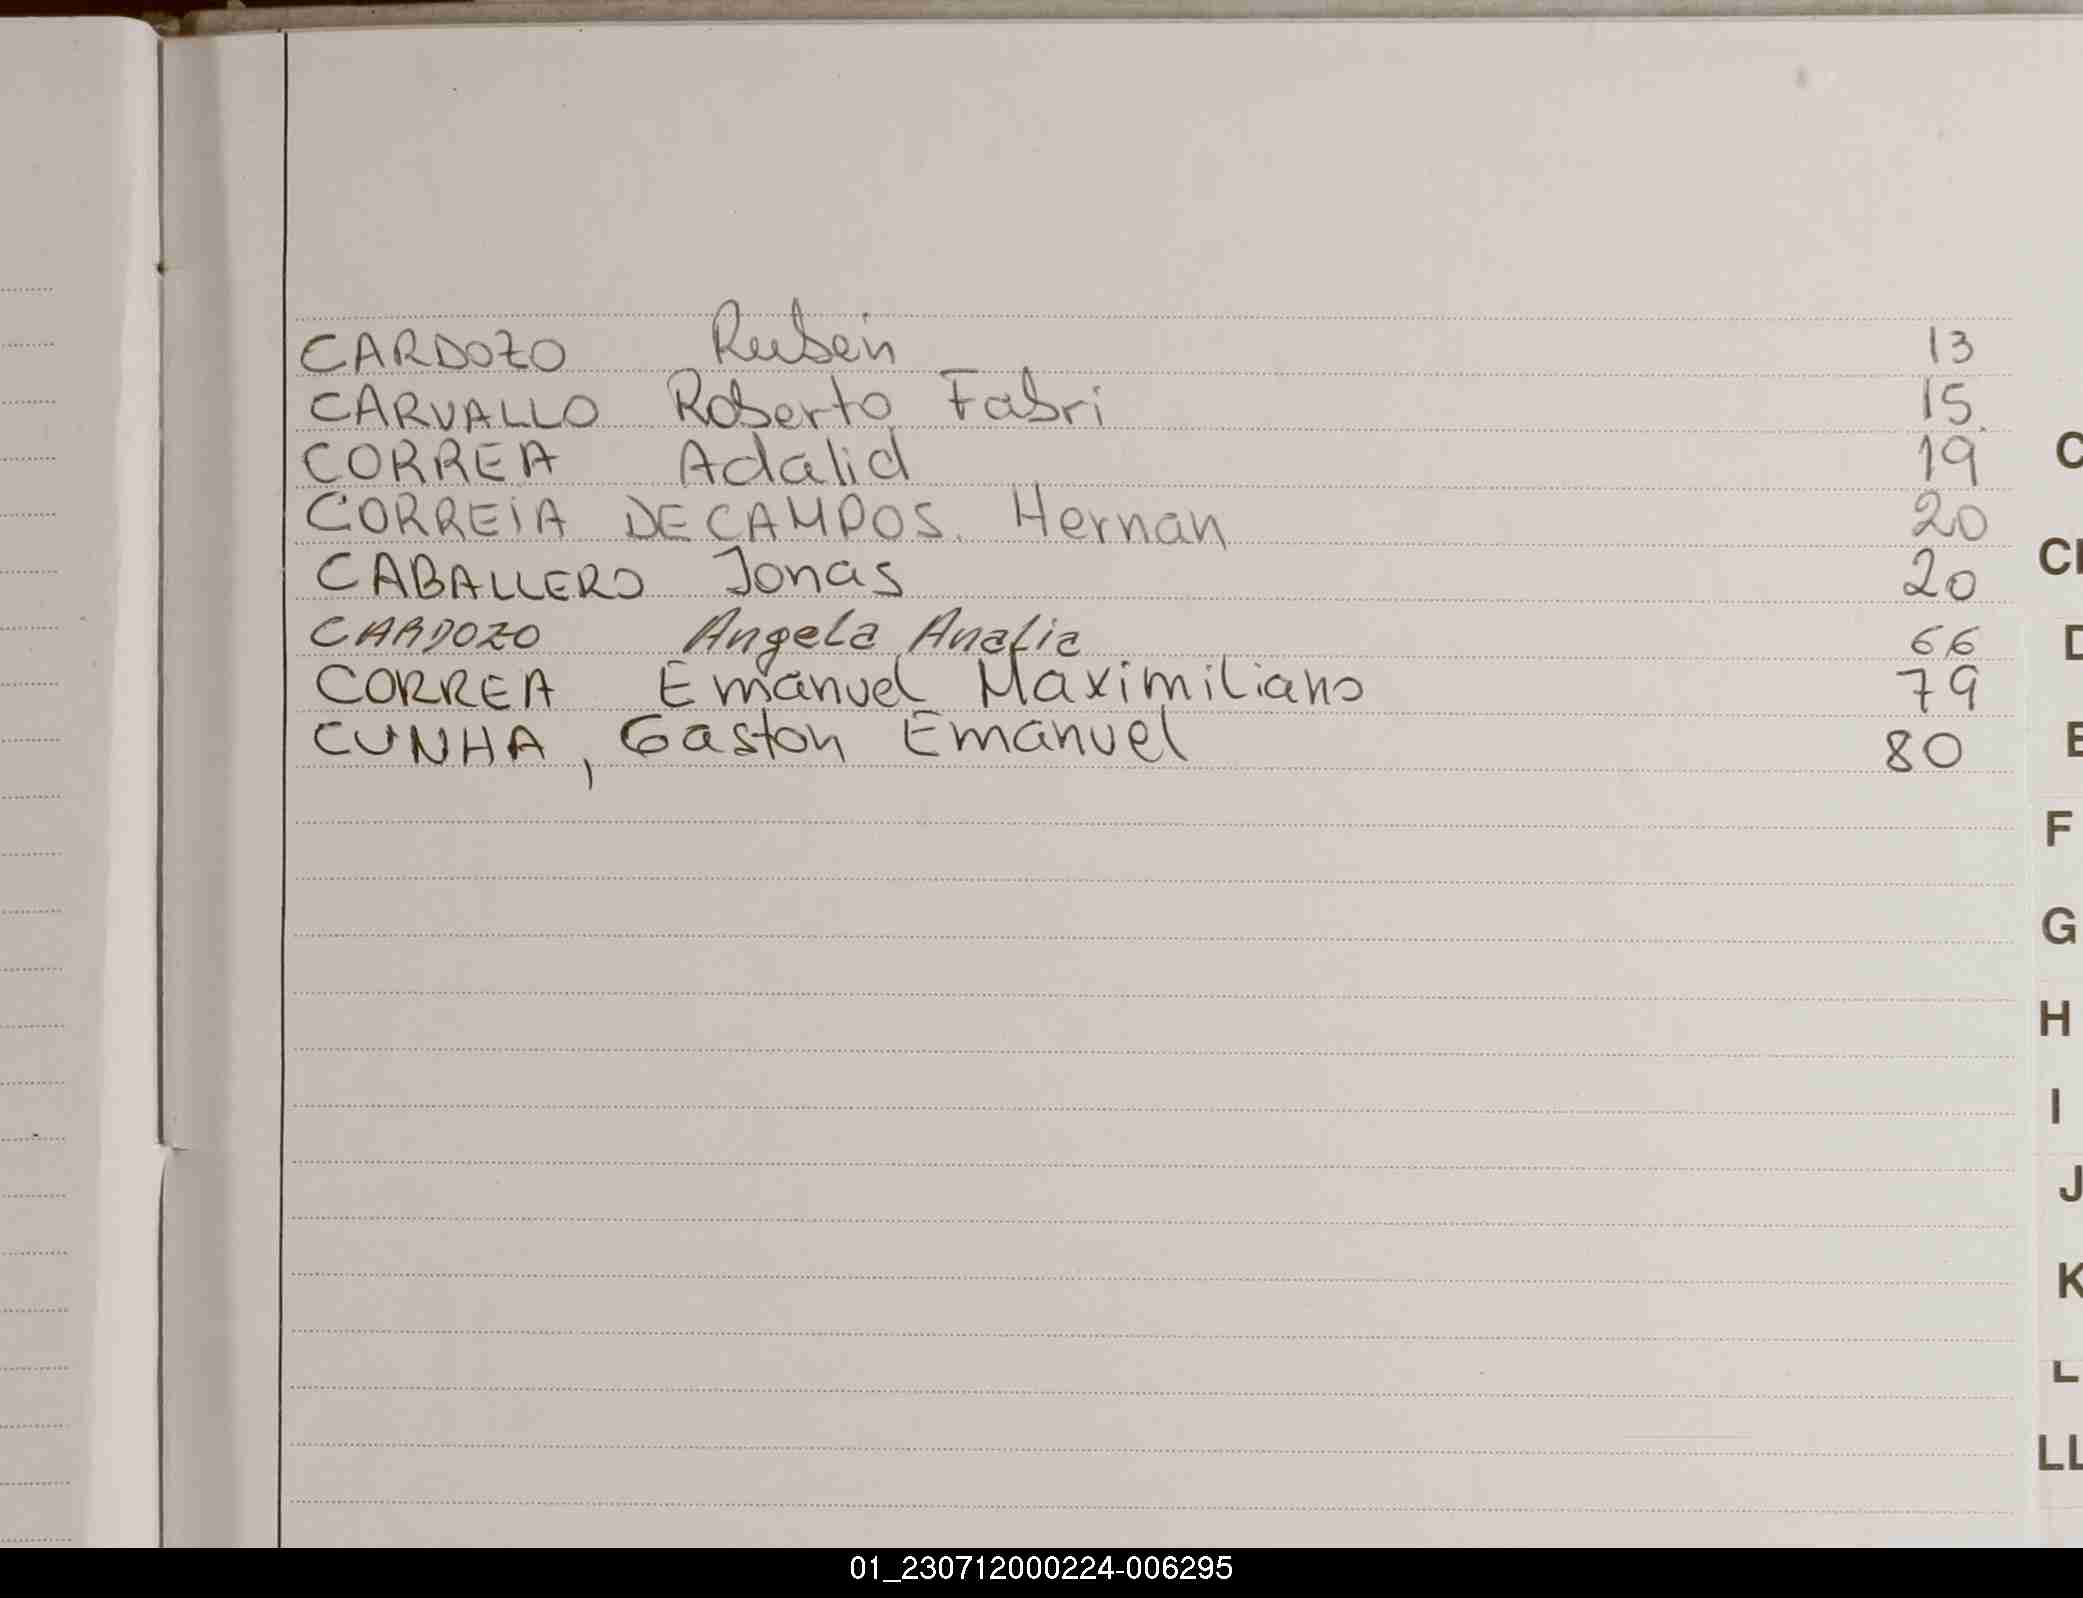 CARDOZO Rubén 13
CARVALLO Roberto Fabri 15
CORREA Adalid 19
CORREIA DE CAMPOS. Hernan 20
CABALLERO Jonas 20
CARDOZO Angela Analia 66
CORREA Emanuel Maximiliano 79
CUNHA, Gaston Emanuel 80
C
D
E
F
G
H
I
J
K
L
LL
01_230712000224-006295